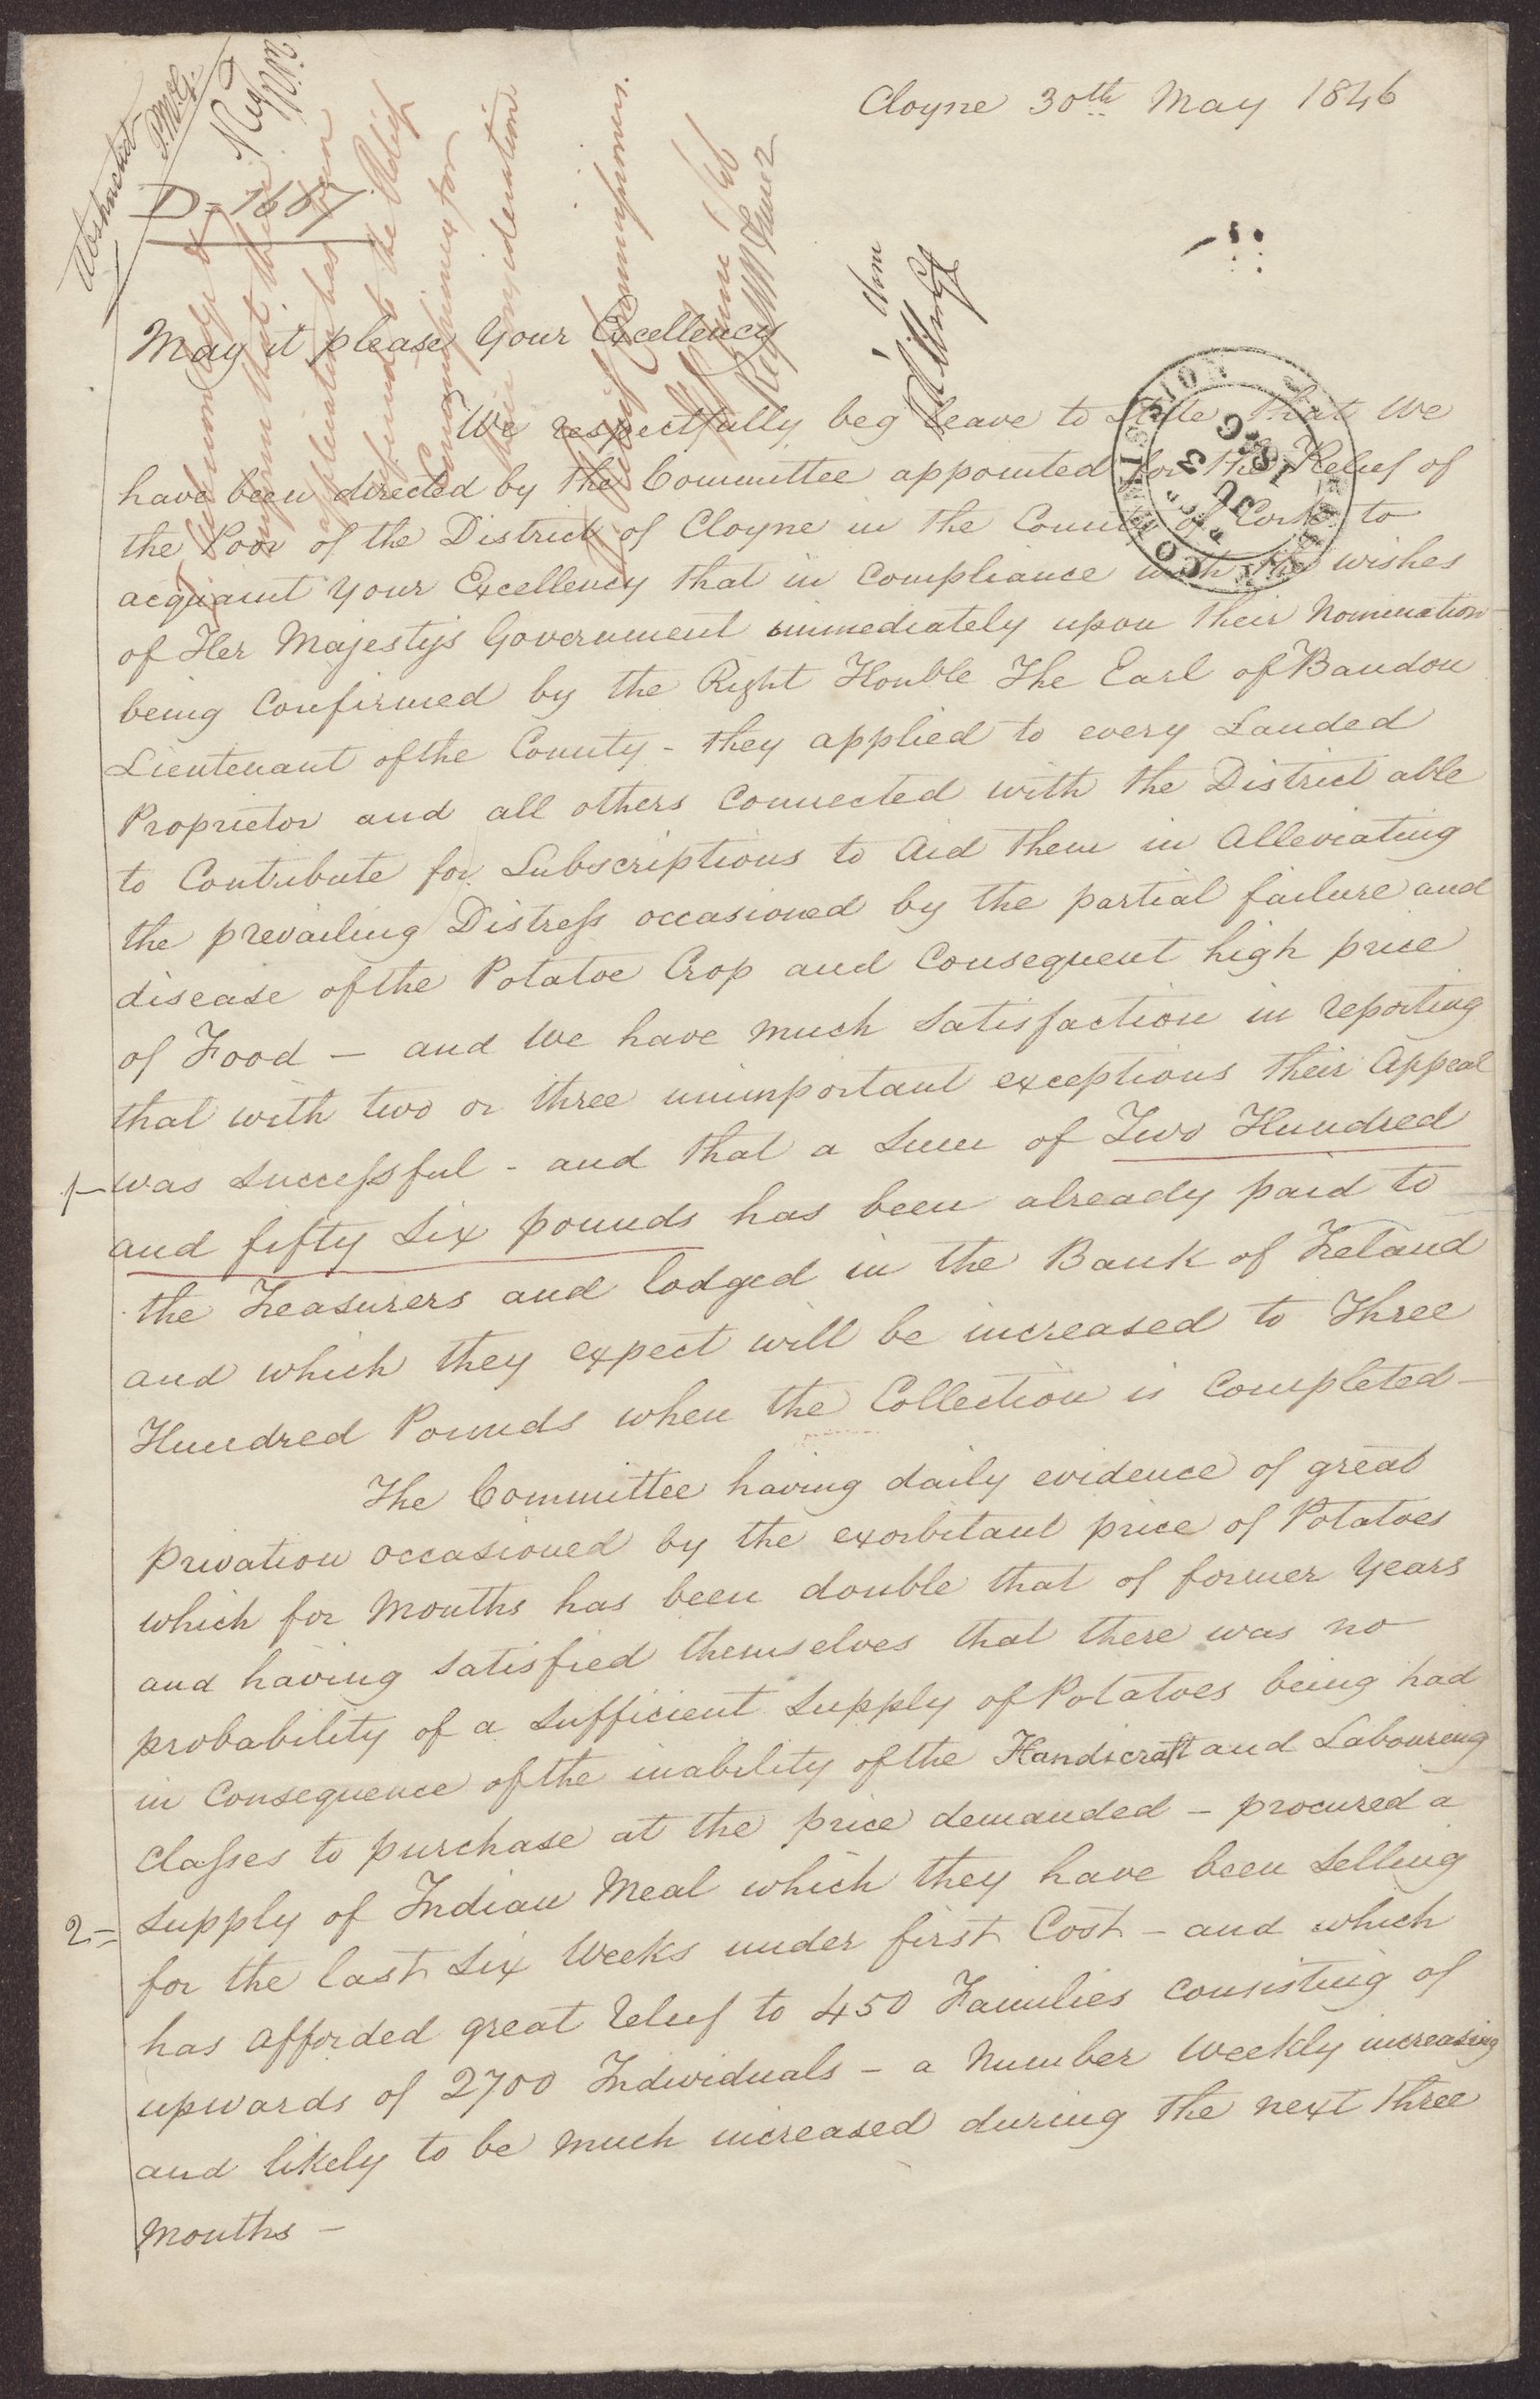 Cloyne 30th May 1846
Abstracted
P.M.G.
D-1687
Acknowledge &
inform that their
application has been
referred to the Relief
Commissioners for
their consideration
Relief Commissioners.
June /46
May it please Your Excellency
We respectfully beg leave to State that We
have been directed by the Committee appointed for the Relief of
the Poor of the District of Cloyne in the County of Cork to
acquaint Your Excellency that in Compliance with the wishes
of Her Majestys Government immediately upon their Nomination
being Confirmed by the Right Honble The Earl of Bandon
Lieutenant of the County - they applied to every Landed
Proprietor and all others Connected with the District able
to Contribute for Subscriptions to Aid them in Alleviating
the prevailing Distress occasioned by the partial failure and
disease of the Potatoe Crop and Consequent high price
of Food — and We have much Satisfaction in reporting
that with two or three unimportant exceptions their Appeal
1- was Successful - and that a Sum of Two Hundred
and fifty Six pounds has been already paid to
the Treasurers and lodged in the Bank of Ireland
and which they expect will be increased to Three
Hundred Pounds when the Collection is Completed —
The Committee having daily evidence of great
privation occasioned by the exorbitant price of Potatoes
which for Months has been double that of former Years
and having Satisfied themselves that there was no
probability of a Sufficient Supply of Potatoes being had
in Consequence of the inability of the Handicraft and Labouring
Classes to purchase at the price demanded — procured a
2= Supply of Indian Meal which they have been Selling
for the last Six Weeks under first Cost — and which
has afforded great relief to 450 Families Consisting of
upwards of 2700 Individuals — a Number Weekly increasing
and likely to be Much increased during the next three
Months —